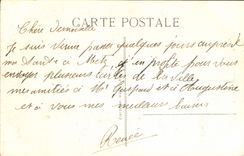 CARTE POSTALE
Chère Demoiselle
Je suis venue passer quelques jours auprès de
ma Tante à Metz, j'en profite pour vous
envoyer plusieurs cartes de la ville
mes amitiés à Mr Gaspard et à Augustine
et à vous mes meilleurs baisers
Renée